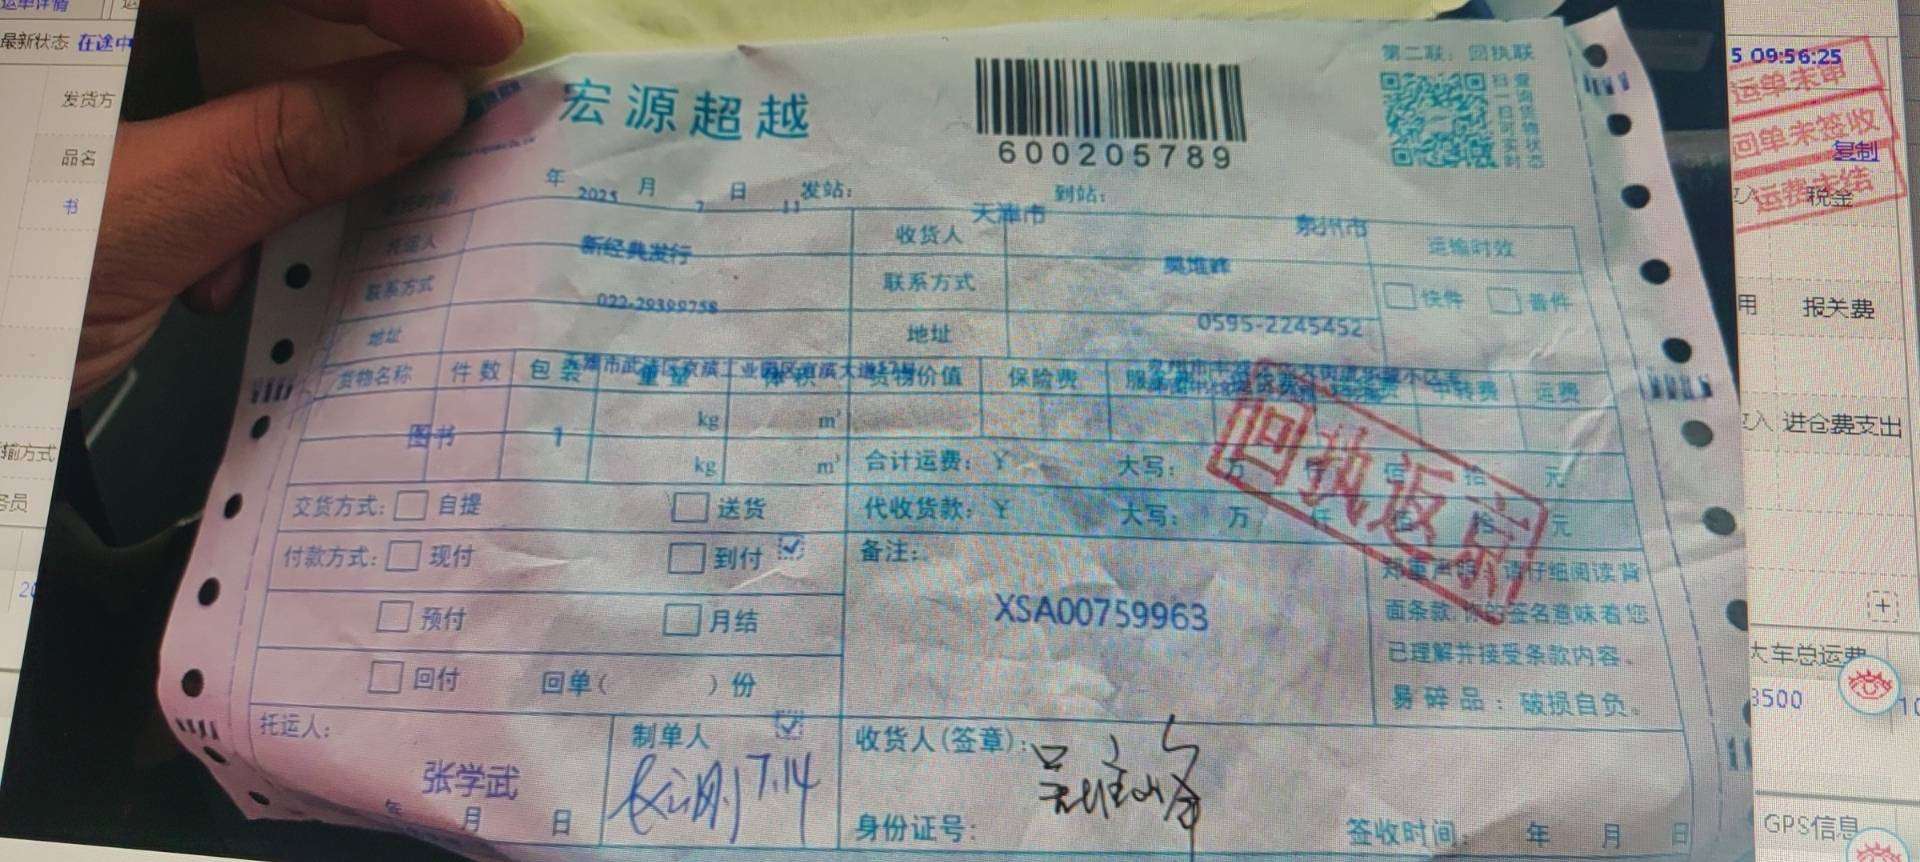 运单详情
最新状态 在途中
发货方
品名
书
输方式
务员
5 09:56:25
运单未审
回单未签收
复制
运费未结
税金
用 报关费
进仓费支出
大车总运费
3500
GPS信息
第二联：回执联
宏源超越
600205789
年 月 日 发站： 到站：
2025 7 11 天津市 泉州市
托运人 新经典发行 收货人 运输时效
联系方式 022-29399758 联系方式 快件 普件
地址 地址 0595-2245452
货物名称 件数 包装 重量 体积 货物价值 保险费 中转费 运费
图书 1 kg m³
kg m³ 合计运费：￥ 大写： 万 仟 佰 拾 元
交货方式： 自提 送货 代收货款：￥ 大写： 万 仟 佰 拾 元
回执返京
付款方式： 现付 到付 备注：
预付 月结 XSA00759963
回付 回单( )份
郑重声明：请仔细阅读背
面条款,你的签名意味着您
已理解并接受条款内容。
易碎品：破损自负。
托运人： 制单人 收货人(签章)：
张学武 7.14
年 月 日 身份证号： 签收时间： 年 月 日